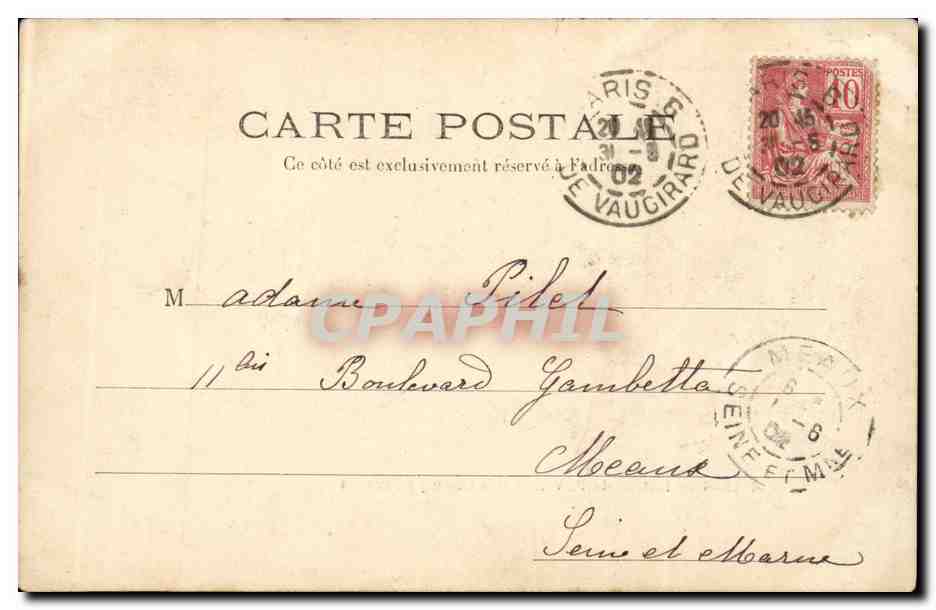 CARTE POSTALE
Ce côté est exclusivement réservé à l'adresse
PARIS 6
20 45
31 - 5
02
DE VAUGIRARD
POSTES
10
20 45
31 - 5
02
DE VAUGIRARD
Madame Pilet
CPAPHIL
11 bis Boulevard Gambetta
Meaux
Seine et Marne
MEAUX
6
1 - 6
02
SEINE ET MNE